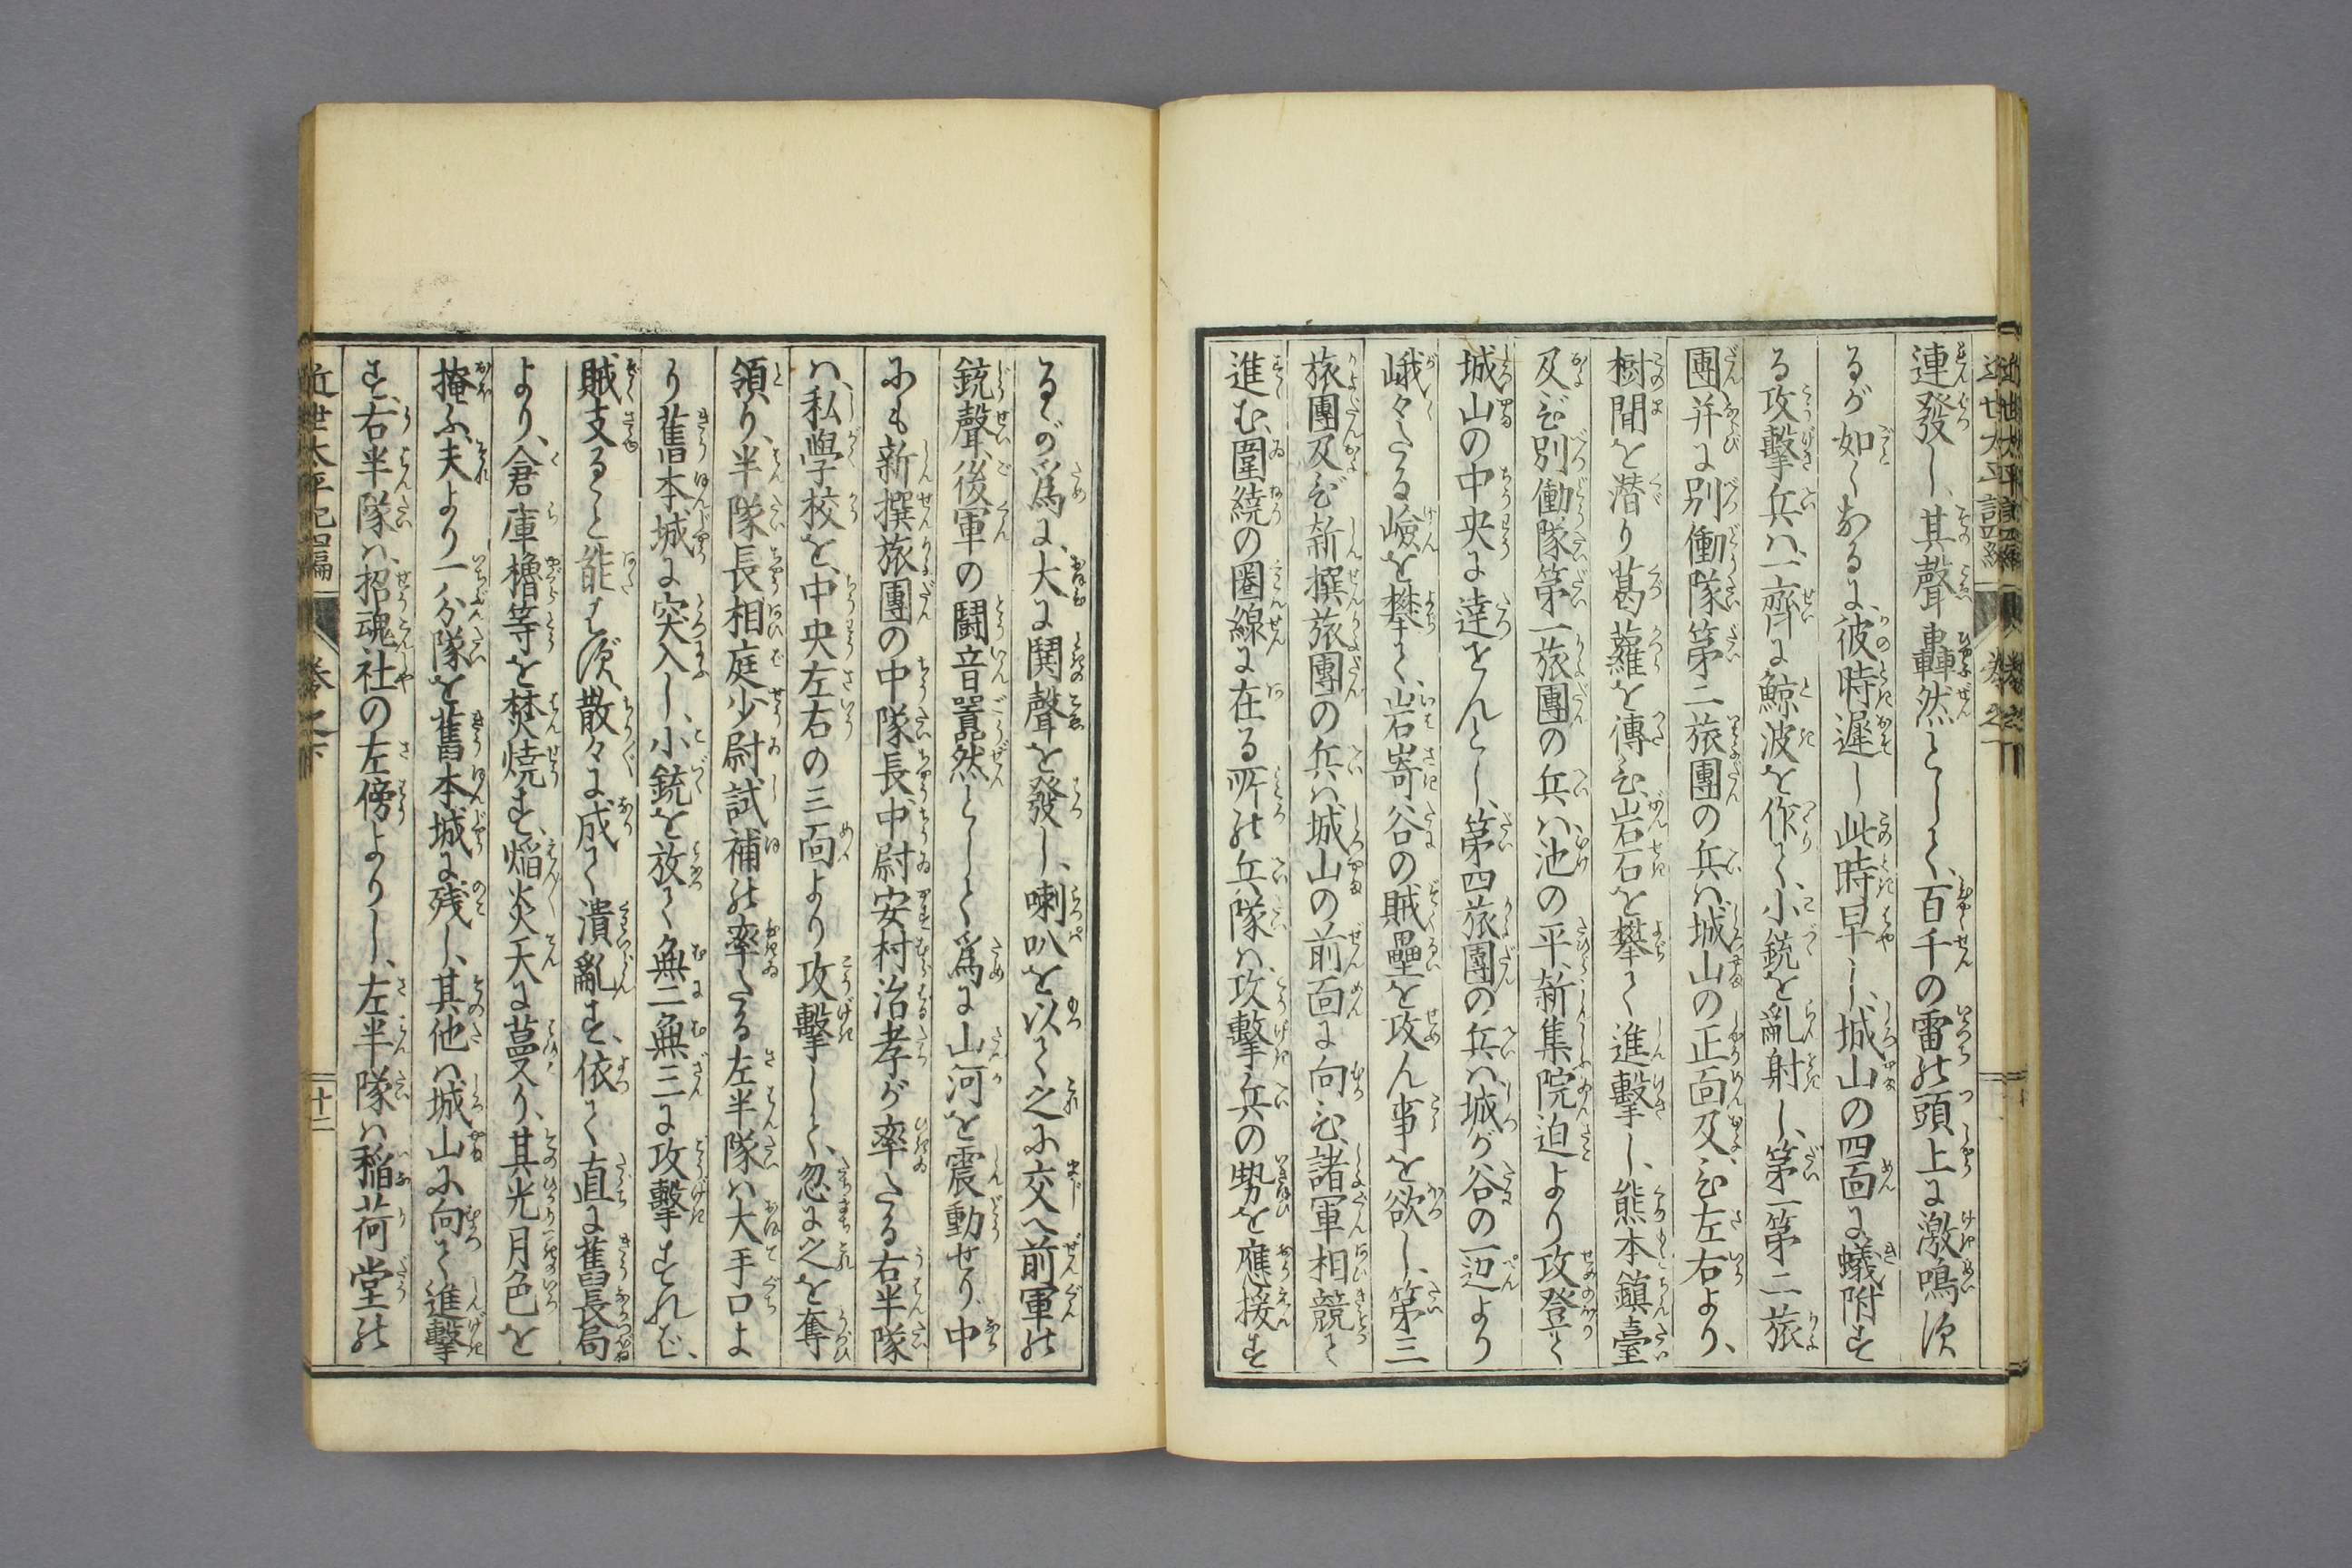 連發し、其聲轟然として、百千の雷の頭上に激鳴す
るが如くなるに、彼時遲し此時早し、城山の四面に蟻附せ
る攻擊兵ハ、一齊に鯨波を作て、小銃を亂射し、第一第二旅
團并に別働隊第二旅團の兵ハ、城山の正面及び左右より、
樹間を潜り葛蘿を傳ひ、岩石を攀て進擊し、熊本鎮臺
及び別働隊第一旅團の兵ハ池の平、新集院迫より攻登て
城山の中央に達せんとし、第四旅團の兵ハ城が谷の一辺より
峨々たる嶮を攀て、岩嵜谷の賊壘を攻ん事を欲し、第三
旅團及び新撰旅團の兵ハ城山の前面に向ひ、諸軍相競て
進む、圍繞の圏線に在る所の兵隊ハ、攻擊兵の勢を應接す
るが爲に、大に鬨聲を發し、喇叭を以て之に交へ前軍の
銃聲、後軍の鬪音囂然として爲に山河を震動せり、中
にも新撰旅團の中隊長中尉安村治孝が率たる右半隊
ハ、私學校を、中央左右の三面より攻擊して、忽に之を奪
領り、半隊長相庭少尉試補の率たる左半隊ハ大手口よ
り舊本城に突入し、小銃を放て無二無三に攻擊すれバ、
賊支ると能はず、散々に成て潰亂す、依て直に舊長局
より、倉庫櫓等を焚焼す、焔炎天に蔓り、其光月色を
掩ふ、夫より一分隊を舊本城に残し、其他ハ城山に向て進擊
す、右半隊ハ、招魂社の左傍よりし、左半隊ハ稲荷堂の
近世太平記四編 卷之下 十二